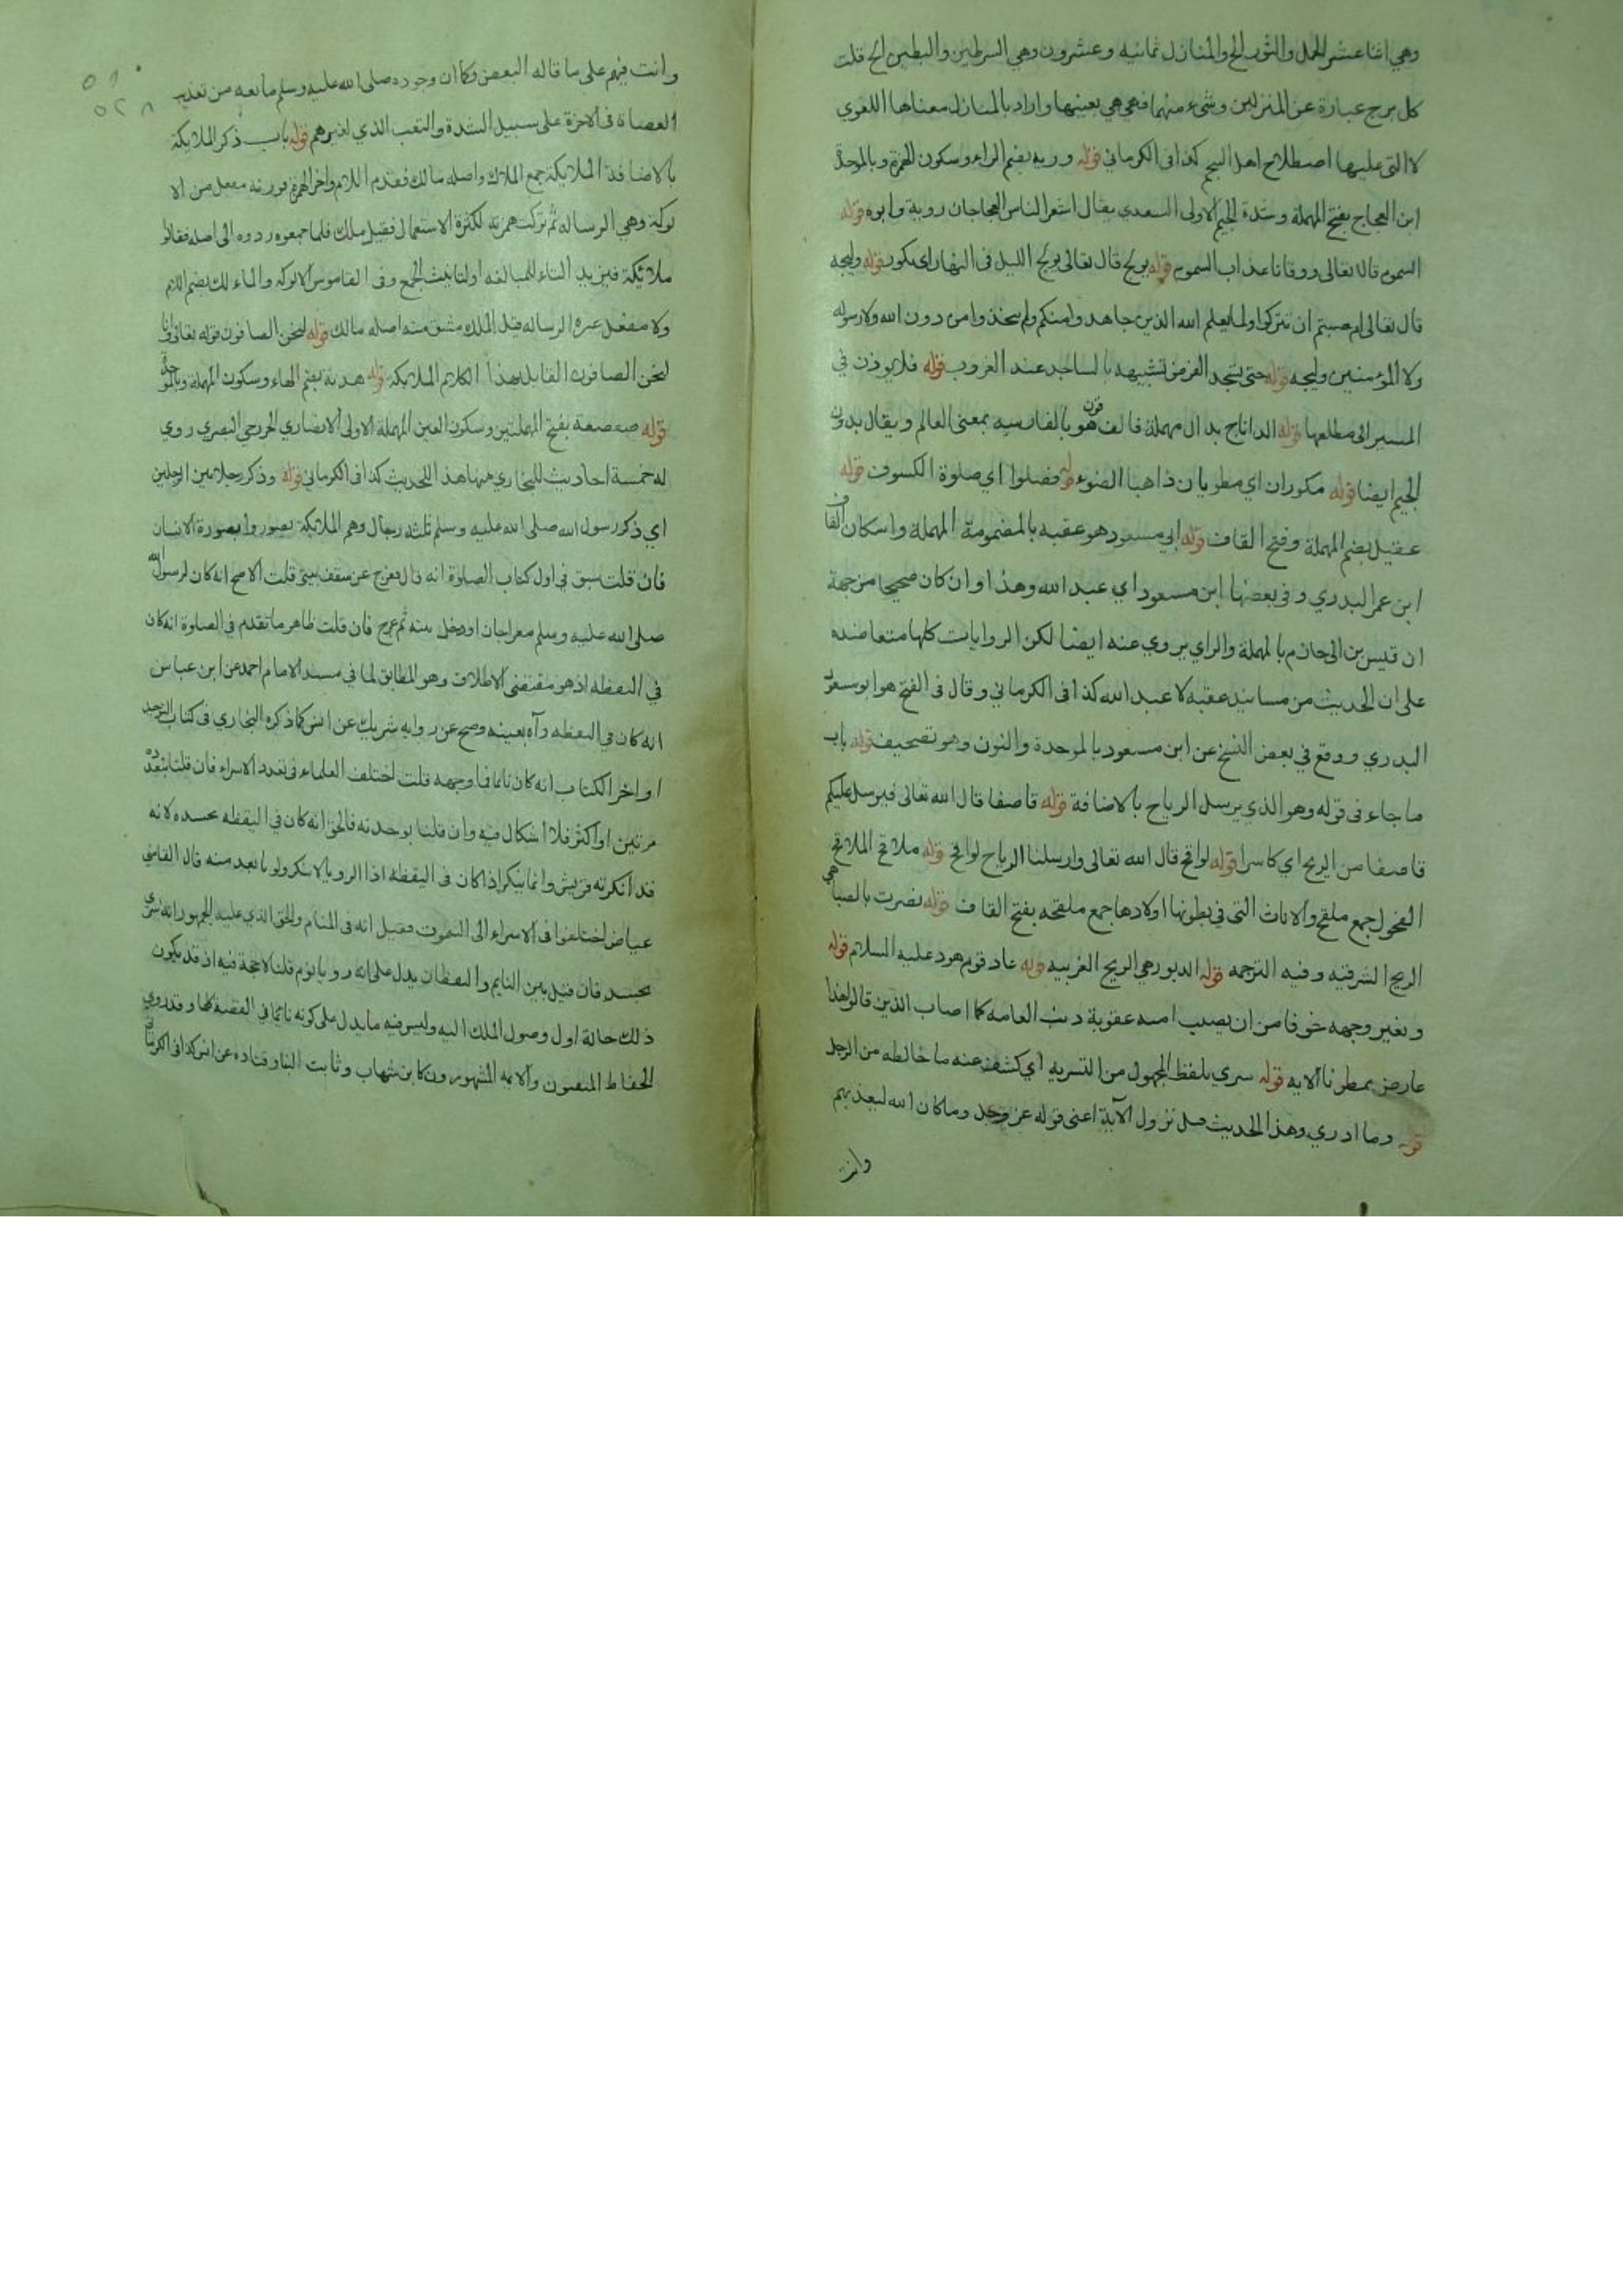 وهي اثنا عشر الحمل والثور الخ والمنازل ثمانيه وعشرون وهي السرطين والبطين الخ قلت
كل برج عبارة عن المنزلين وشيء منهما فهي هي بعينها واراد بالمنازل معناها اللغوي
لا التي عليها اصطلاح اهل النجم كذا في الكرماني قوله وربه بضم الراء وسكون الهمزة وبالموحدة
ابن العجاج بفتح المهملة وشدة الجيم الاولى السعدي يقال اشعر الناس العجاجان روبة وابوه قوله
السموم قال تعالى ووقانا عذاب السموم قوله يولج قال تعالى يولج الليل في النهار اي يكور قوله وليجه
قال تعالى ام حسبتم ان تتركوا ولما يعلم الله الذين جاهدوا منكم ولم يتخذوا من دون الله ولا رسوله
ولا المؤمنين وليجه قوله حتى يسجد الغرض تشبيهه بالساجد عند الغروب قوله فلا يوذن في
المسير الى مطلعها قوله الداناج بدال مهملة فالف هو بالفارسيه بمعنى العالم ويقال بدون
الجيم ايضا قوله مكوران اي مطويان ذاهبا الضوء قوله فصلوا اي صلوة الكسوف قوله
عقيل بضم المهملة وفتح القاف قوله ابي مسعود هو عقبه بالمضمومة المهملة واسكان القاف
ابن عمر البدري وفي بعضها ابن مسعود اي عبد الله وهذا وان كان صحيحا من جهة
ان قيس بن ابي حازم بالمهملة والزاي يروي عنه ايضا لكن الروايات كلها متعاضده
على ان الحديث من مسانيد عقبه لا عبد الله كذا في الكرماني وقال في الفتح هو ابو مسعود
البدري ووقع في بعض النسخ عن ابن مسعود بالموحدة والنون وهو تصحيف قوله باب
ما جاء في قوله وهو الذي يرسل الرياح بالاضافة قوله قاصفا قال الله تعالى فيرسل عليكم
قاصفا من الريح اي كاسرا قوله لواقح قال الله تعالى وارسلنا الرياح لواقح قوله ملاقح الملاقح
الفحول جمع ملقح والاناث التي في بطونها اولادها جمع ملقحه بفتح القاف قوله نصرت بالصبا هي
الريح الشرقيه وفيه الترجمه قوله الدبور هي الريح الغربيه قوله عاد قوم هود عليه السلام قوله
وتغير وجهه خوفا من ان يصيب امته عقوبة ذنب العامه كما اصاب الذين قالوا هذا
عارض ممطرنا الايه قوله سري بلفظ المجهول من التسريه اي كشف عنه ما خالطه من الوجل
قوله وما ادري وهذا الحديث قبل نزول الآية اعني قوله عز وجل وما كان الله ليعذبهم
وانت
وانت فيهم على ما قاله البعض وكان وجوده صلى الله عليه وسلم مانعه من تعذيب
العصاة في الاخرة على سبيل الشدة والتعب الذي لغيرهم قوله باب ذكر الملايكة
بالاضافة الملائكة جمع الملاك واصله مالك فقدم اللام واخر الهمزة فوزنه مفعل من الا
لوكة وهي الرساله ثم تركت همزته لكثرة الاستعمال فقيل ملك فلما جمعوه ردوه الى اصله فقالوا
ملائكة فيزيد التاء للمبالغه او لتانيث الجمع وفي القاموس الالوكه والمالك بضم اللام
ولا مفعل غيره الرساله قيل الملك مشتق منه اصله مالك قوله لنحن الصافون قوله تعالى وانا
لنحن الصافون القايل لهذا الكلام الملايكه قوله هدبة بضم الهاء وسكون المهملة وبالموحدة
قوله صعصعة بفتح المهملتين وسكون العين المهملة الاولى الانصاري الخزرجي البصري روي
له خمسة احاديث للبخاري منها هذا الحديث كذا في الكرماني قوله وذكر رجلا بين الرجلين
اي ذكر رسول الله صلى الله عليه وسلم ثلثه رجال وهم الملايكة تصوروا بصورة الانسان
فان قلت سبق في اول كتاب الصلوة انه قال فعرج عن سقف بيتي قلت الاصح انه كان لرسول الله
صلى الله عليه وسلم معراجان او دخل بيته ثم عرج فان قلت ظاهر ما تقدم في الصلوة انه كان
في اليقظه اذ هو مقتضى الاطلاق وهو المطابق لما في مسند الامام احمد عن ابن عباس
انه كان في اليقظه رآه بعينه وصح عن روايه شريك عن انس كما ذكره البخاري في كتاب التوحيد
اواخر الكتاب انه كان نائما فما وجهه قلت اختلف العلماء في تعدد الاسراء فان قلنا بتعدده
مرتين او اكثر فلا اشكال فيه وان قلنا بوحدته فالحق انه كان في اليقظه بجسده لانه
قد انكرته قريش وانما ينكر اذا كان في اليقظه اذا الرويا لا تنكر ولو بابعد منه قال القاضي
عياض اختلفوا في الاسراء الى السموت فقيل انه في المنام والحق الذي عليه الجمهور انه اسري
بجسده فان قيل بين النايم واليقظان يدل على انه رويا نوم قلنا لا حجة فيه اذ قد يكون
ذلك حالة اول وصول الملك اليه وليس فيه ما يدل على كونه نائما في القصه كلها وقد روي
الحفاظ المتقنون والايمه المشهورون كابن شهاب وثابت البنا وقتاده عن انس كذا في الكرماني